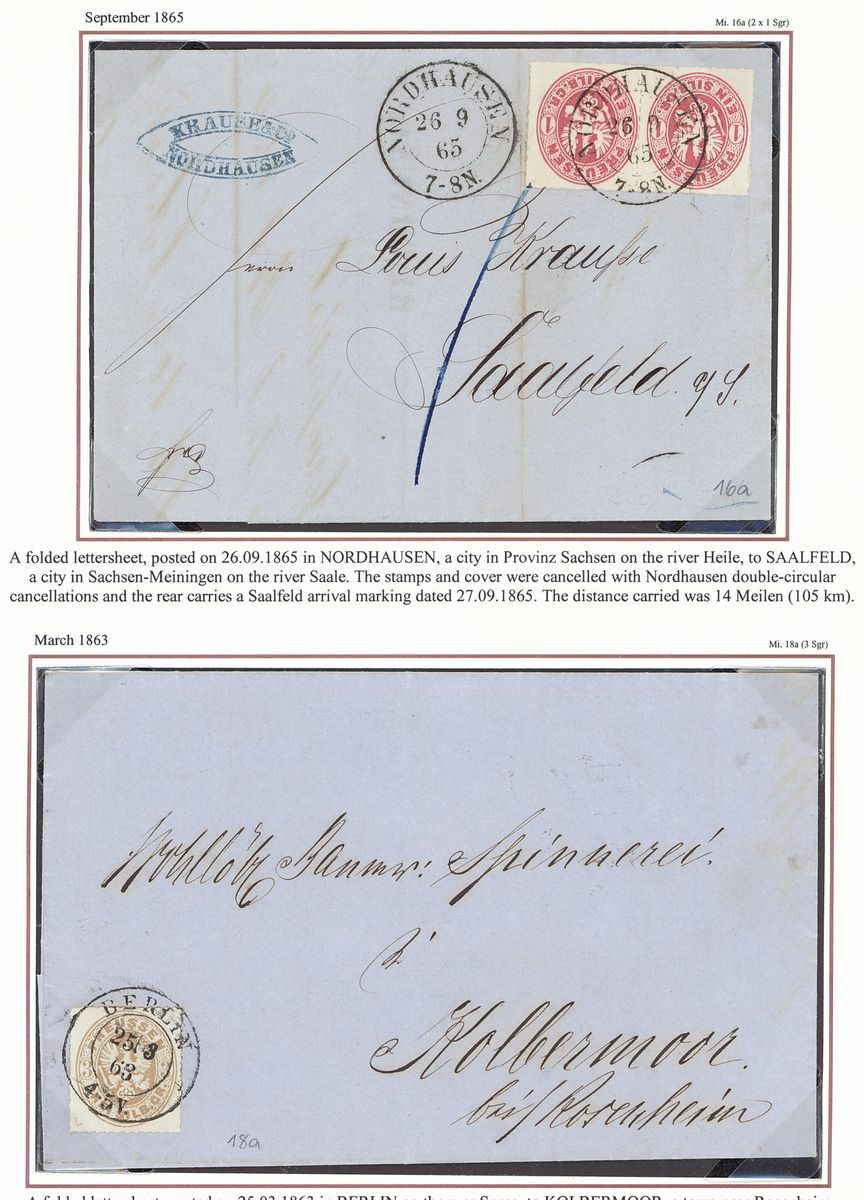 September 1865
Mi. 16a (2 x 1 Sgr)
KRAUSE & Co
NORDHAUSEN
NORDHAUSEN
26 9
65
7-8N.
EIN SILB.GR.
1 PREUSSEN 1
NORDHAUSEN
26 9
65
7-8N.
EIN SILB.GR.
PREUSSEN 1
Herrn Louis Krauße
Saalfeld a/S.
fra
16a
A folded lettersheet, posted on 26.09.1865 in NORDHAUSEN, a city in Provinz Sachsen on the river Heile, to SAALFELD,
a city in Sachsen-Meiningen on the river Saale. The stamps and cover were cancelled with Nordhausen double-circular
cancellations and the rear carries a Saalfeld arrival marking dated 27.09.1865. The distance carried was 14 Meilen (105 km).
March 1863
Mi. 18a (3 Sgr)
Wohllöb. Baumw: Spinnerei.
Kolbermoor.
bei Rosenheim
BERLIN
25 3
63
4-5V.
PREUSSEN
18a
A folded lettersheet, posted on 25.03.1863 in BERLIN on the river Spree, to KOLBERMOOR, a town near Rosenheim